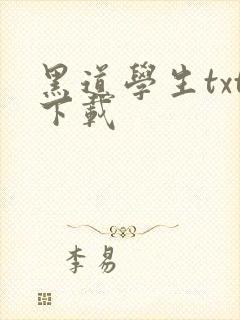 黑道學生txt
下載
李易